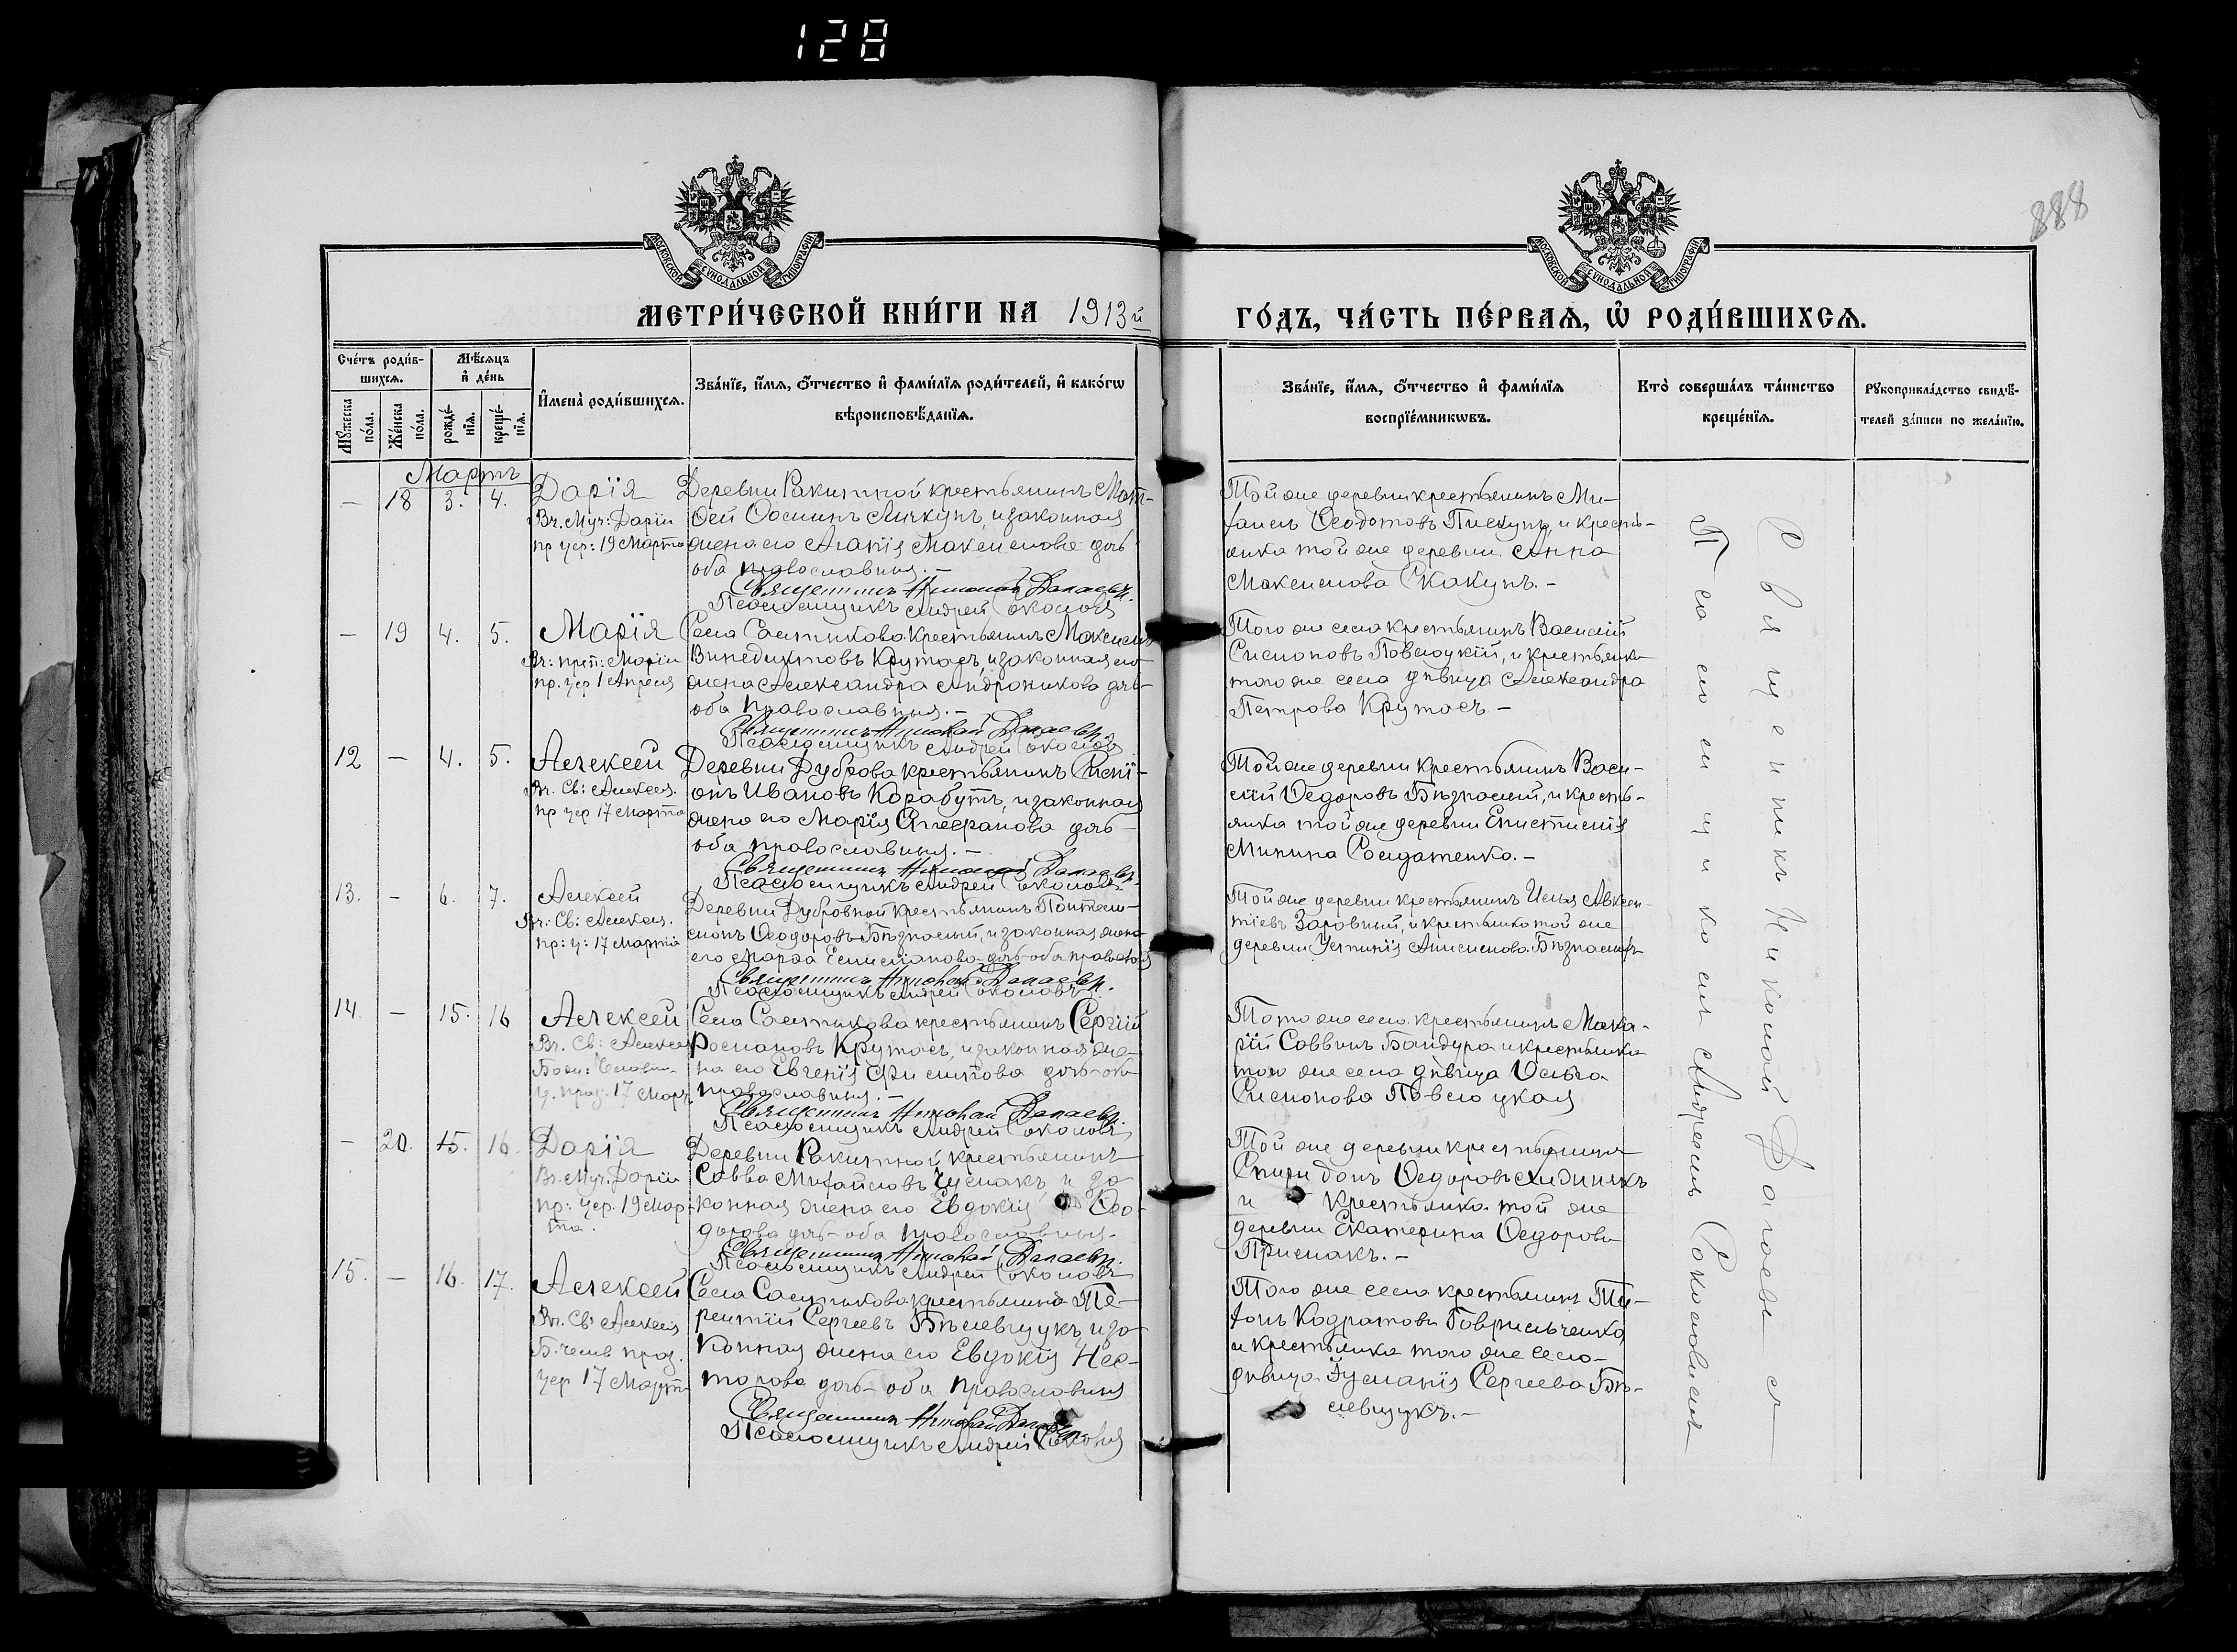 128
888
МОСКОВСКОЙ СѴНОДАЛЬНОЙ ТИПОГРАФІИ
МОСКОВСКОЙ СѴНОДАЛЬНОЙ ТИПОГРАФІИ
МЕТРИ́ЧЕСКОЙ КНИ́ГИ НА 1913й
ГО́ДЪ, ЧА́СТЬ ПЕ́РВАѦ, Ѡ҆ РОДИ́ВШИХСѦ.
Сче́тъ роди́в-
шихсѧ.
Мꙋ́жеска по́ла.
Же́нска по́ла.
Мѣ́сѧцъ
и҆ де́нь
рожде́-
нїѧ.
креще́-
нїѧ.
И҆мена̀ роди́вшихсѧ.
Зва́нїе, и҆́мѧ, ѻ҆́тчество и҆ фами́лїѧ роди́телей, и҆ како́гѡ
вѣроисповѣ́данїѧ.
Зва́нїе, и҆́мѧ, ѻ҆́тчество и҆ фами́лїѧ
воспрїе́мникѡвъ.
Кто̀ соверша́лъ та́инство
креще́нїѧ.
Рꙋкоприкла́дство свидѣ́-
телей за́писи по жела́нїю.
Мартъ
— 18 3. 4.
Дарія
Вч. Муч: Даріи
пр цер: 19 Марта
Деревни Ракитной крестьянинъ Мат-
ѳей, и законная
жена его Агапія Максимова
оба православныя. —
Священникъ Николай
Псаломщикъ Андрей Соколовъ
Той же деревни крестьянинъ Ми-
хаилъ Ѳеодотовъ Пискунъ, и кресть-
янка той же деревни Анна
Максимова Скакунъ. —
— 19 4. 5.
Марія
Вч: преп: Маріи
пр. цер 1 Апреля
Села крестьянинъ Максимъ
Винедиктовъ Крутась, и законная его
жена Александра Андроникова
оба православныя. —
Священникъ Николай
Псаломщикъ Андрей Соколовъ
Того же села крестьянинъ Василій
Симоновъ Повлоцкій, и крестьянка
того же села дѣвица Александра
Петрова Крутась —
12 — 4. 5.
Алексей
Вч. Св: Алексея.
пр цер 17 Марта
Деревни Дуброва крестьянинъ Симі-
онъ Ивановъ Корабутъ, и законная
жена его Марія Стефанова
оба православныя. —
Священникъ Николай
Псаломщикъ Андрей Соколовъ
Той же деревни крестьянинъ Васи-
лій Ѳедоровъ Бѣзпалый, и кресть-
янка той же деревни Епистимія
Минина Солдатенко. —
13. — 6. 7.
Алексей
Вч: Св: Алексея.
пр: ц: 17 Марта
Деревни Дубровной крестьянинъ Пантели-
монъ Ѳеодоровъ Бѣзпалый, и законная жена
его Марѳа Емиліанова оба православныя
Священникъ Николай
Псаломщикъ Андрей Соколовъ
Той же деревни крестьянинъ Илья Авксен-
тіевъ Заровный, и крестьянка той же
деревни Устинія Анисимова Бѣзпалыхъ
14. — 15. 16
Алексей
Вч. Св: Алексея
Бож: Человѣ
ц. праз. 17 Март.
Села крестьянинъ Сергій
Романовъ Крутась, и законная же-
на его Евгенія Филипова оба
православныя. —
Священникъ Николай
Псаломщикъ Андрей Соколовъ
Того же села крестьянинъ Мака-
рій Саввинъ Бандура и крестьянка
того же села дѣвица Ольга
Симонова Повлоцкая
— 20. 15. 16.
Дарія
Вч. Муч. Даріи
пр: цер. 19 Мар-
та.
Деревни Ракитной крестьянинъ
Савва Михайловъ Чумакъ, и за-
конная жена его Евдокія Ѳео-
дорова оба православныя.
Священникъ Николай
Псаломщикъ Андрей Соколовъ
Той же деревни крестьянинъ
Спиридонъ Ѳедоровъ
и крестьянка той же
деревни Екатерина Ѳедорова
Примакъ. —
15. — 16. 17.
Алексей
Вч. Св: Алексея
Б. челов праз.
цер 17 Марта
Села крестьянинъ Те-
рентій Сергеевъ Бѣлевцукъ, и за-
конная жена его Евдокія Нес-
торова оба православныя
Священникъ Николай
Псаломщикъ Андрей Соколовъ
Того же села крестьянинъ Ти-
хонъ Кодратовъ Гаврильченко,
и крестьянка того же села
дѣвица Іуліанія Сергеева Бѣ-
левцукъ. —
Священникъ Николай
Псаломщикомъ Андреемъ Соколовымъ